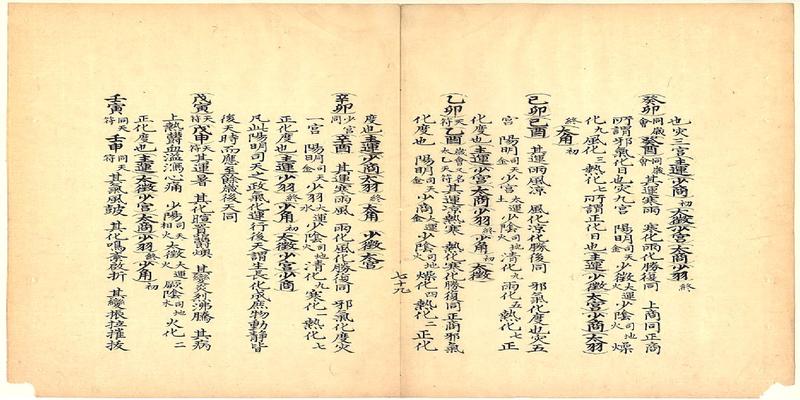 也灾三宮主運少商初太羽少角太徵少宮終
癸卯同歲會癸酉同歲會其運寒雨 寒化雨化勝復同 上商同正商
所謂邪氣化日也灾九宮 陽明司天金少徵火運少陰司地火燥
化九風化三熱化七所謂正化日也主運少徵太宮少商太羽
終太角初
己卯己酉 其運雨風涼 風化涼化勝復同 邪氣化度也灾五
宮 陽明司天金少宮土運少陰司地火清化九雨化五熱化七正
化度也主運少宮太商少羽終少角初太徵
乙卯天符乙酉歲會又名太乙天符其運涼熱寒 熱化寒化勝復同正商邪氣
化度也 陽明司天金少商金運少陰司地火燥化四熱化二正化
七十九
度也主運少商太羽終太角初少徵太宮
辛卯少宮同辛酉 其運寒雨風 雨化風化勝復同 邪氣化度灾
一宮 陽明司天金少羽水運少陰司地火清化九寒化一熱化七
正化度也主運少羽終少角初太徵少宮少商
凡此陽明司天之政氣化運行後天謂生長化成庶物動靜皆
後天時而應至餘歲後天同
戊寅天符戊申天符其運暑 其化暄嚻鬱燠 其變炎烈沸騰 其病
上熱鬱血溢泄心痛 少陽司天相火太徵火運厥陰司地木火化二
正化度也主運太徵少宮太商少羽終少角初
壬寅同天符壬申同天符其氣風鼓 其化鳴紊啟拆 其變振拉摧拔